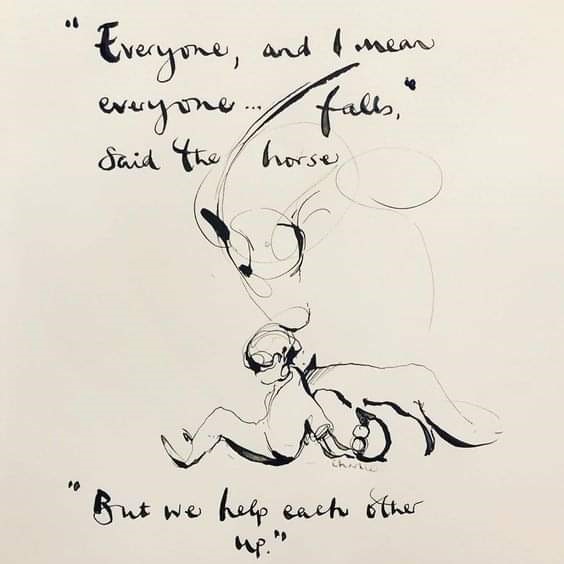 "Everyone, and I mean
everyone... falls,"
said the horse
charlie
"But we help each other
up."